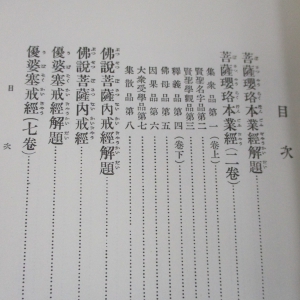 目次
菩薩瓔珞本業經解題
菩薩瓔珞本業經(二卷)
集衆品第一(卷上)
賢聖名字品第二
賢聖學觀品第三
釋義品第四(卷下)
佛母品第五
因果品第六
大衆受學品第七
集散品第八
佛說菩薩內戒經解題
佛說菩薩內戒經
優婆塞戒經解題
優婆塞戒經(七卷)
目次